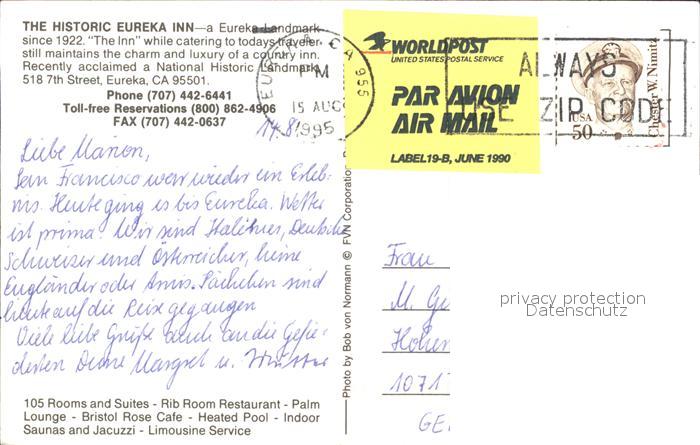 THE HISTORIC EUREKA INN—a Eureka Landmark
since 1922. "The Inn" while catering to todays traveler
still maintains the charm and luxury of a country inn.
Recently acclaimed a National Historic Landmark
518 7th Street, Eureka, CA 95501.
Phone (707) 442-6441
Toll-free Reservations (800) 862-4906
FAX (707) 442-0637
14.8.
Liebe Marion,
San Francisco war wieder ein Erleb-
nis. Heute ging es bis Eureka. Wetter
ist prima. Wir sind Italiener, Deutsche
Schweizer und Österreicher, keine
Engländer oder Amis. Päckchen sind
heute auf die Reise gegangen
Viele liebe Grüße auch an die Gefie-
derten Deine Margret u.
105 Rooms and Suites - Rib Room Restaurant - Palm
Lounge - Bristol Rose Cafe - Heated Pool - Indoor
Saunas and Jacuzzi - Limousine Service
Photo by Bob von Normann © FVN Corporation
EUREKA CA 955
PM
15 AUG
1995
WORLDPOST
UNITED STATES POSTAL SERVICE
PAR AVION
AIR MAIL
LABEL 19-B, JUNE 1990
ALWAYS
USE ZIP CODE
USA
50
Chester W. Nimitz
Frau
M. Ge
Hohen
1071
GE
privacy protection
Datenschutz